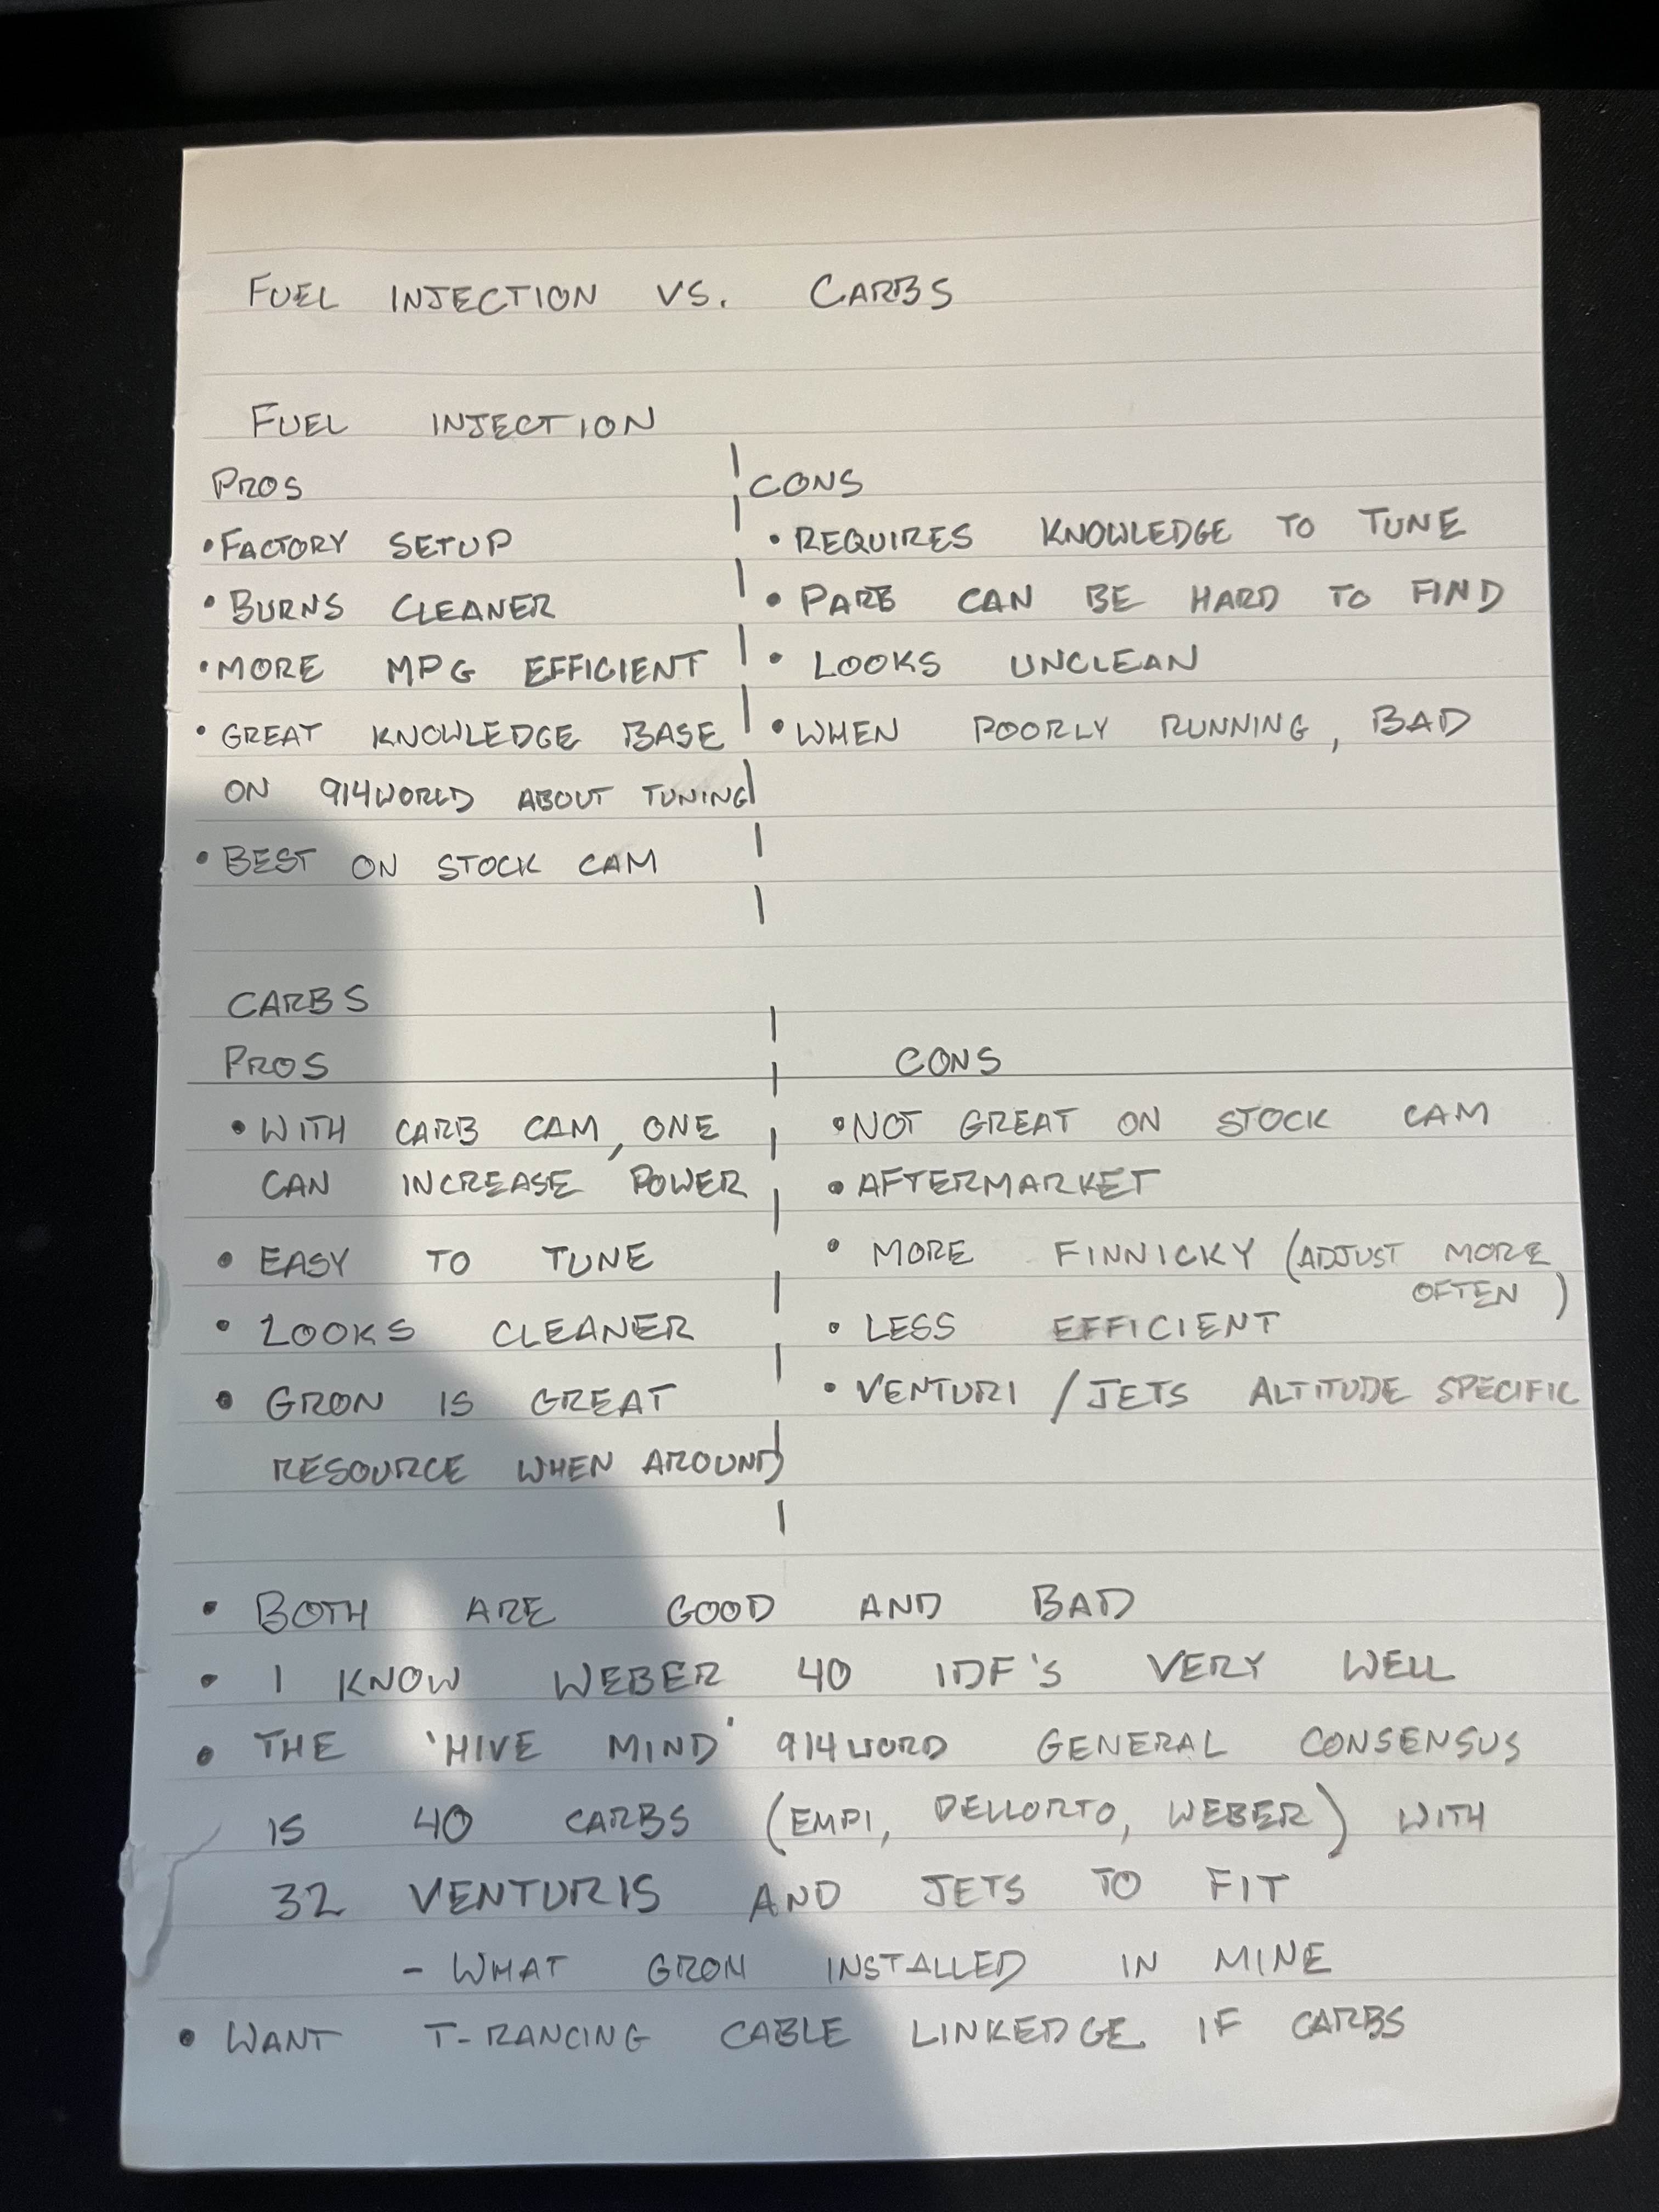 FUEL INJECTION VS. CARBS
FUEL INJECTION
PROS
• FACTORY SETUP
• BURNS CLEANER
• MORE MPG EFFICIENT
• GREAT KNOWLEDGE BASE
ON 914WORLD ABOUT TUNING
• BEST ON STOCK CAM
CONS
• REQUIRES KNOWLEDGE TO TUNE
• CAN BE HARD TO FIND
• LOOKS UNCLEAN
• WHEN POORLY RUNNING, BAD
CARBS
PROS
• WITH CARB CAM, ONE
CAN INCREASE POWER
• EASY TO TUNE
• LOOKS CLEANER
• GRON IS GREAT
RESOURCE WHEN AROUND
CONS
• NOT GREAT ON STOCK CAM
• AFTERMARKET
• MORE FINNICKY (ADJUST MORE
OFTEN)
• LESS EFFICIENT
• VENTURI / JETS ALTITUDE SPECIFIC
• BOTH ARE GOOD AND BAD
• I KNOW WEBER 40 IDF'S VERY WELL
• THE 'HIVE MIND' 914WORD GENERAL CONSENSUS
IS 40 CARBS (EMPI, DELLORTO, WEBER) WITH
32 VENTURIS AND JETS TO FIT
- WHAT GRON INSTALLED IN MINE
• WANT T-RANCING CABLE LINKEDGE IF CARBS